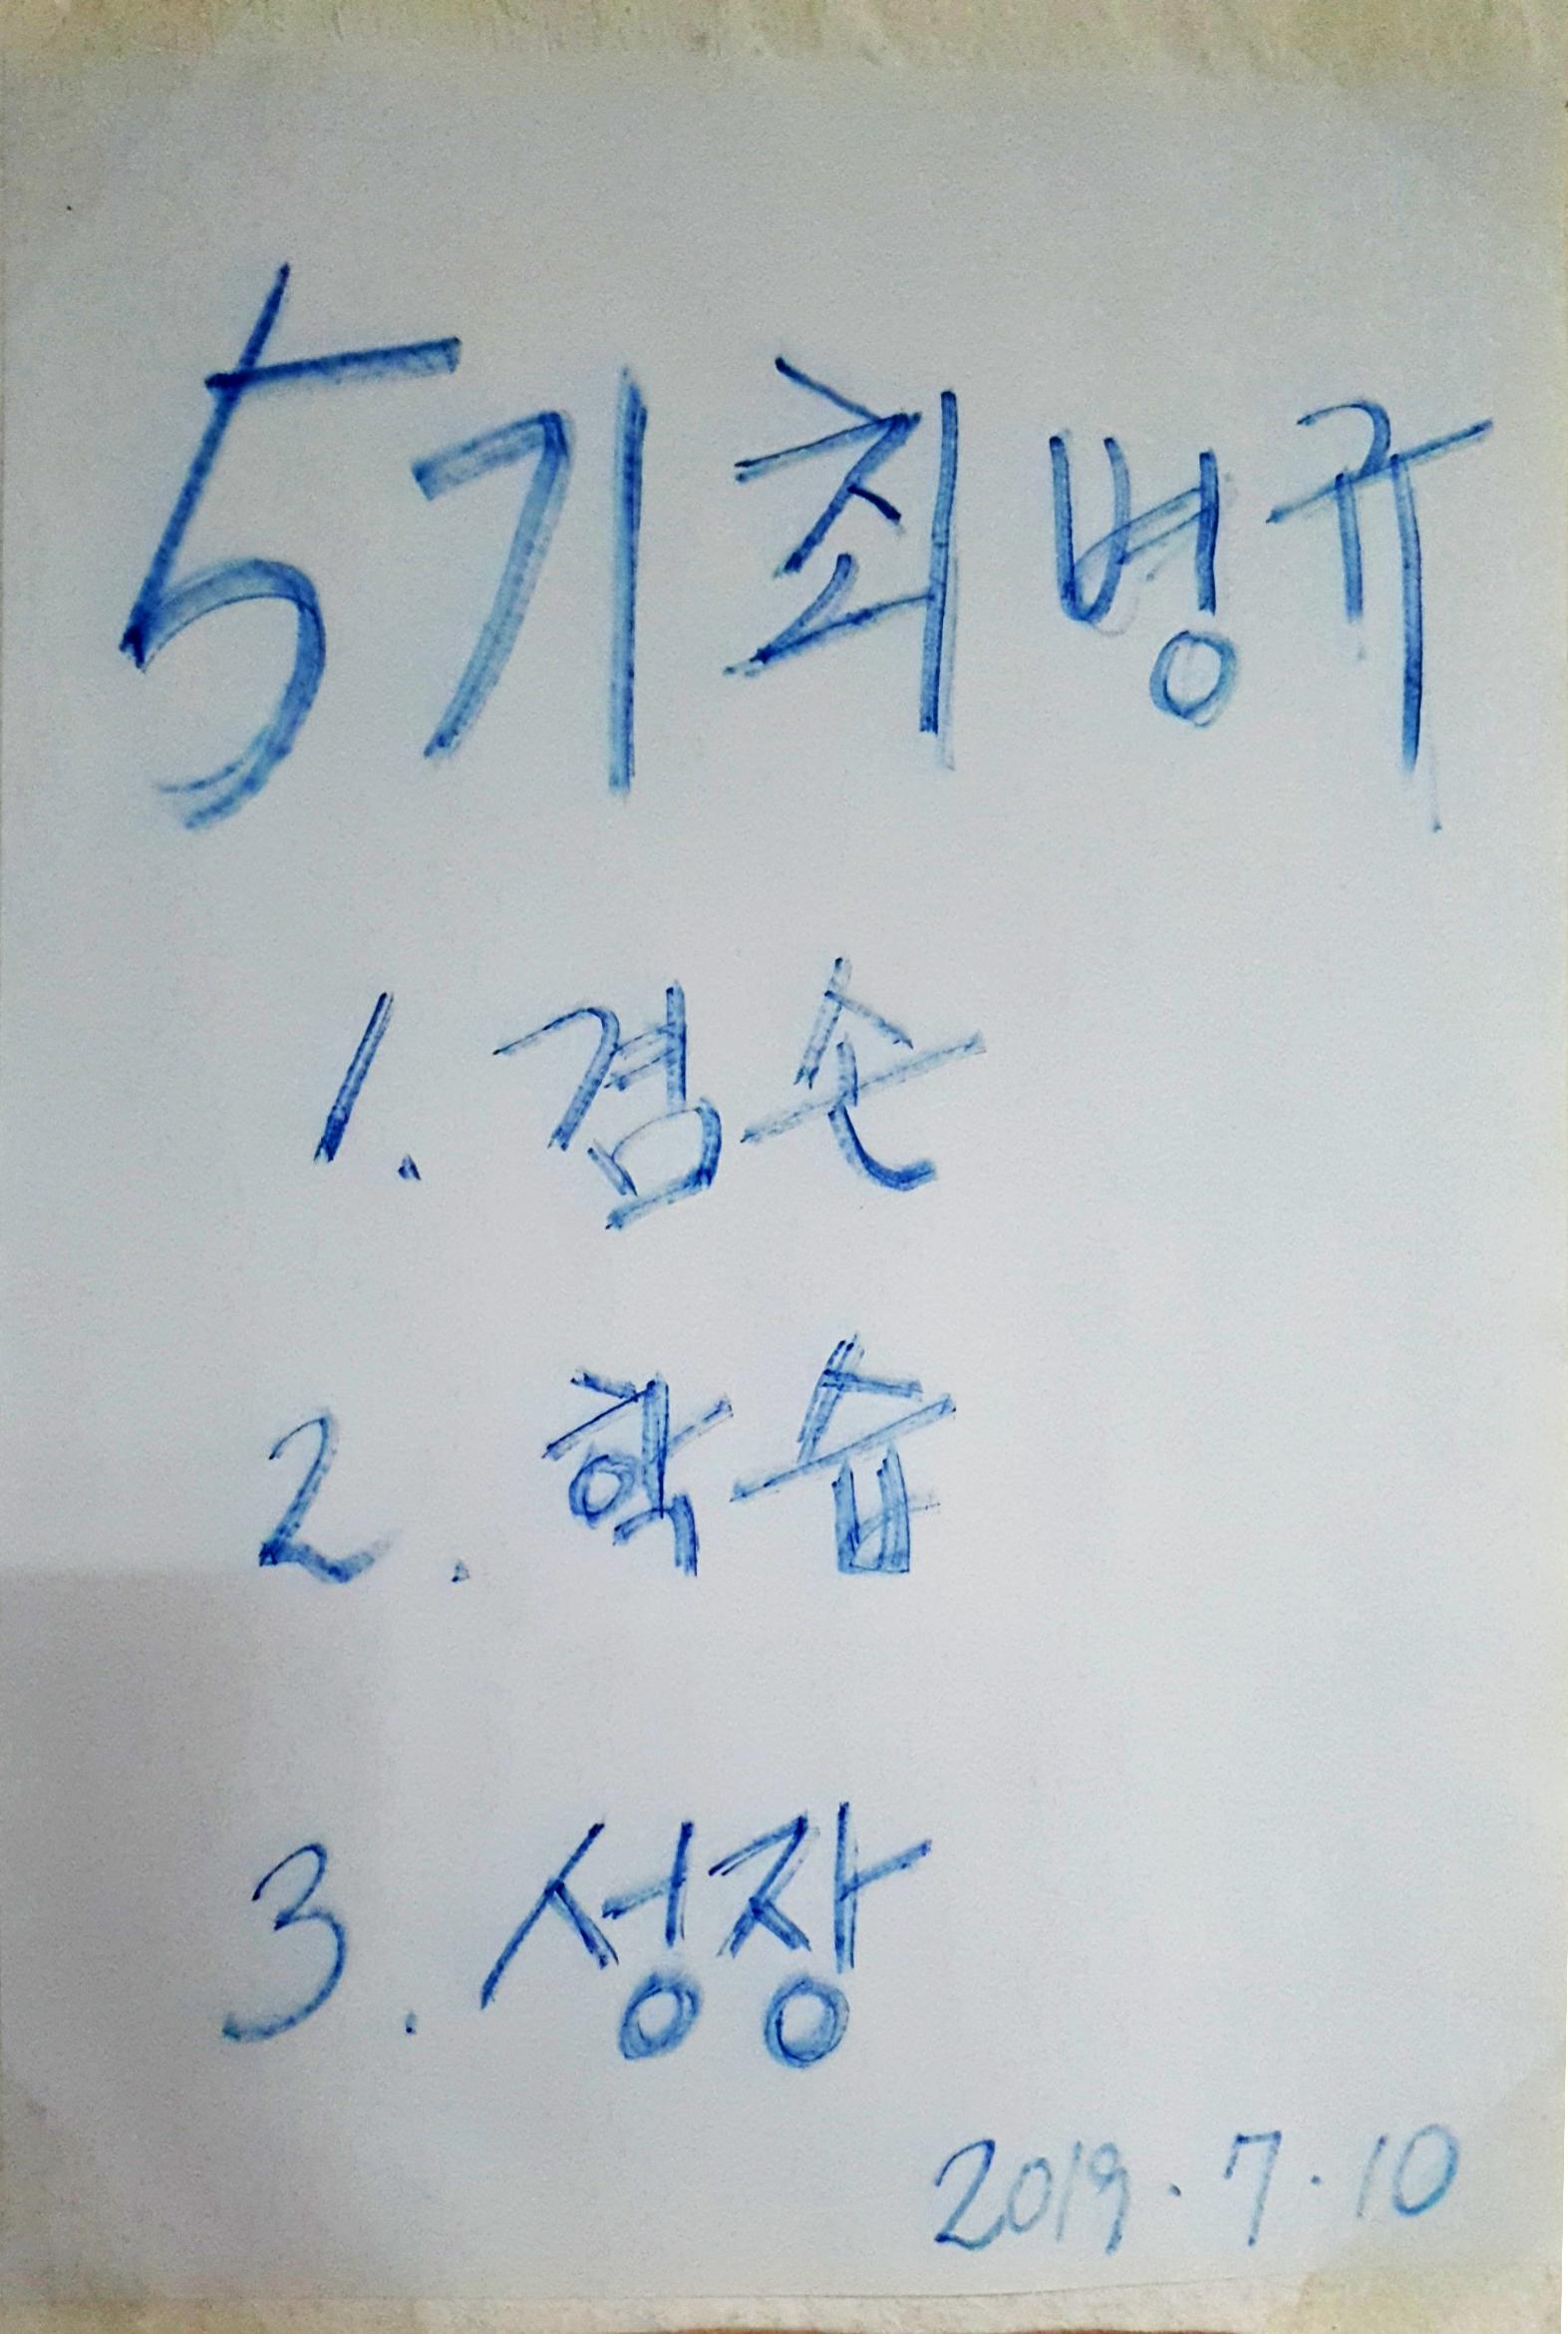 5기 최병규
1. 겸손
2. 학습
3. 성장
2019. 7. 10